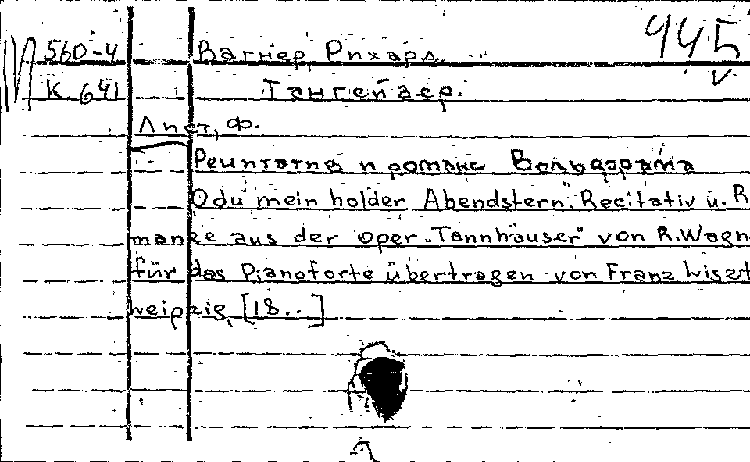 945
560-4 Вагнер, Рихард.
К 641 Тангейзер.
Лист, Ф.
Речитатив и романс Вольфрама
O du mein holder Abendstern". Recitativ u. R
manze aus der oper „Tannhäuser" von R. Wagn
für das Pianoforte übertragen von Franz Liszt
Leipzig, [18...]